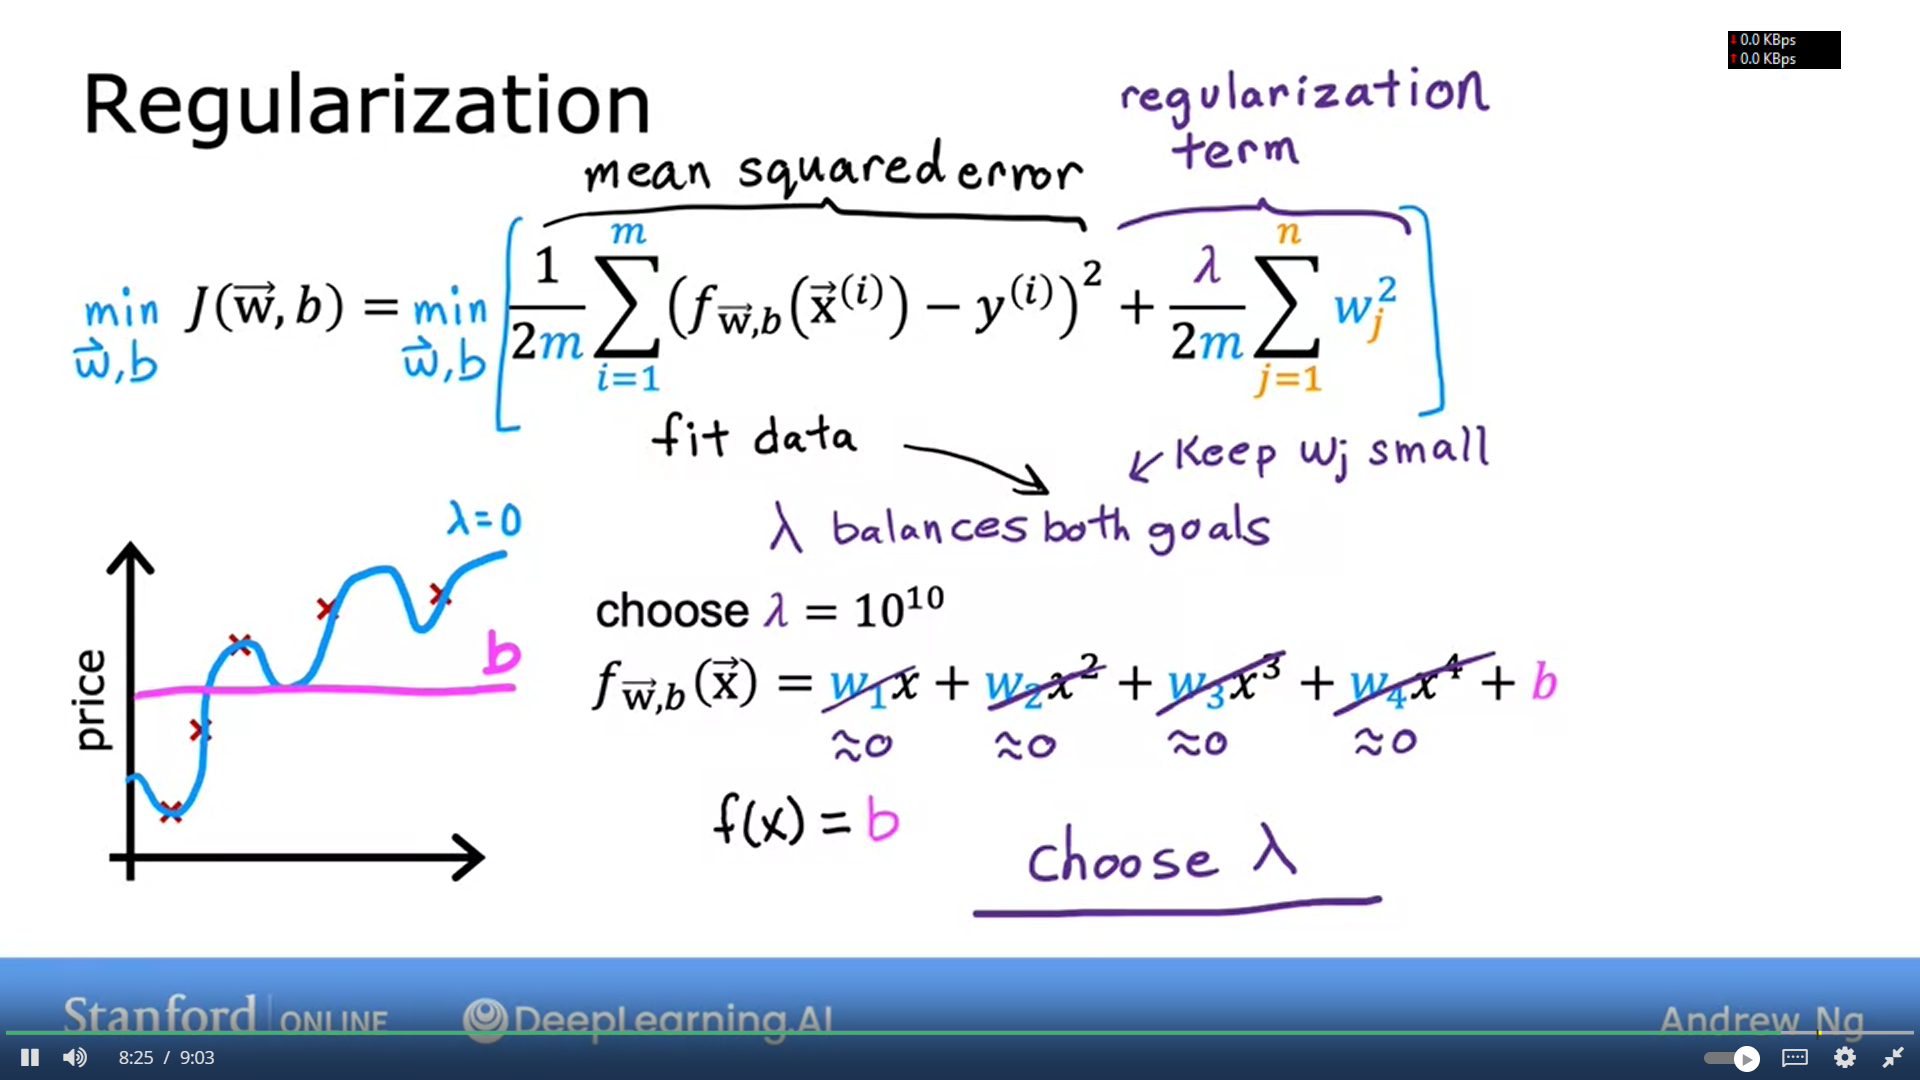 0.0 KBps
0.0 KBps
Regularization
regularization
term
mean squared error
min w⃗,b J(w⃗, b) = min w⃗,b [ 1/2m ∑_{i=1}^{m} (f_{w⃗,b}(x⃗^{(i)}) − y^{(i)})² + λ/2m ∑_{j=1}^{n} w_j² ]
fit data
Keep wj small
λ balances both goals
λ=0
b
price
choose λ = 10¹⁰
f_{w⃗,b}(x⃗) = w₁x + w₂x² + w₃x³ + w₄x⁴ + b
≈0 ≈0 ≈0 ≈0
f(x) = b
Choose λ
Stanford ONLINE
DeepLearning.AI
Andrew Ng
8:25 / 9:03